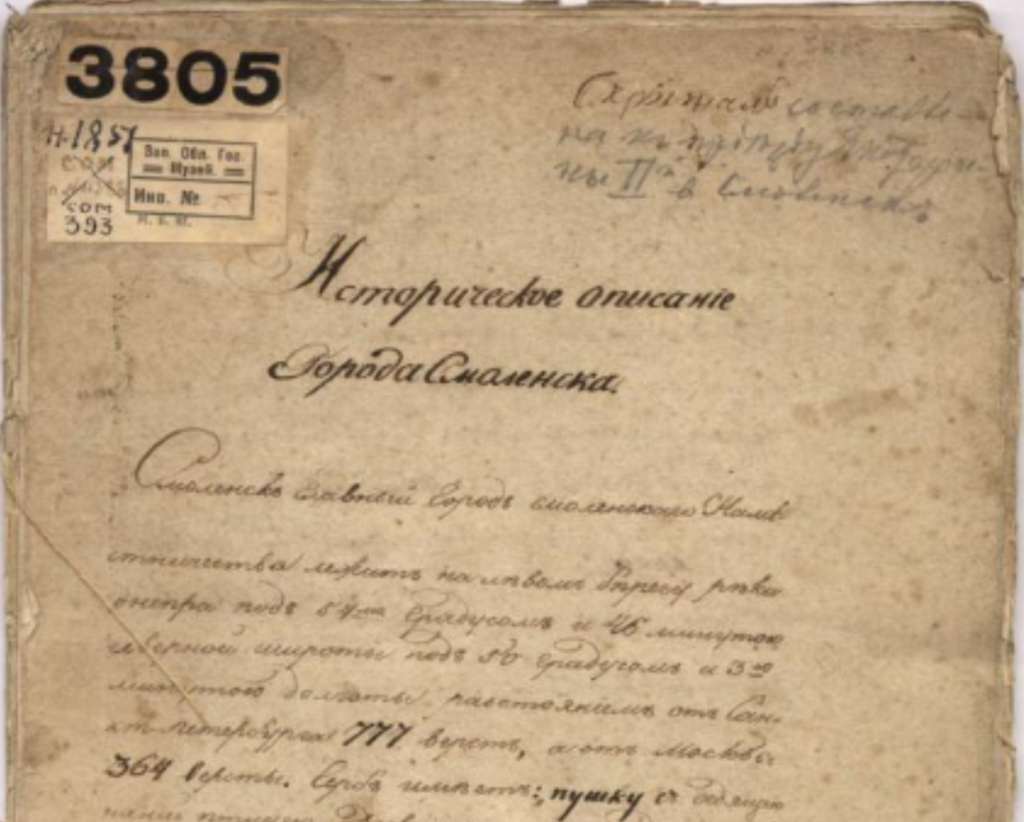 3805
Н. 1851
Зап. Обл. Гос.
Музей.
Инв. №
сом
393
составле-
на къ приѣзду Екатери-
ны II й въ Смоленскъ
Историческое описаніе
Города Смоленска.
Смоленскъ главный городъ смоленскаго Намѣ
стничества лежитъ на лѣвомъ берегу рѣки
днепра подъ 54мъ градусомъ и 46 минутою
северной широты подъ 50 градусомъ и 3ю
минутою долготы разстояніемъ отъ Сан-
кт петербурга 777 верстъ, а отъ Москвы
364 версты. Гербъ имѣетъ: пушку съ